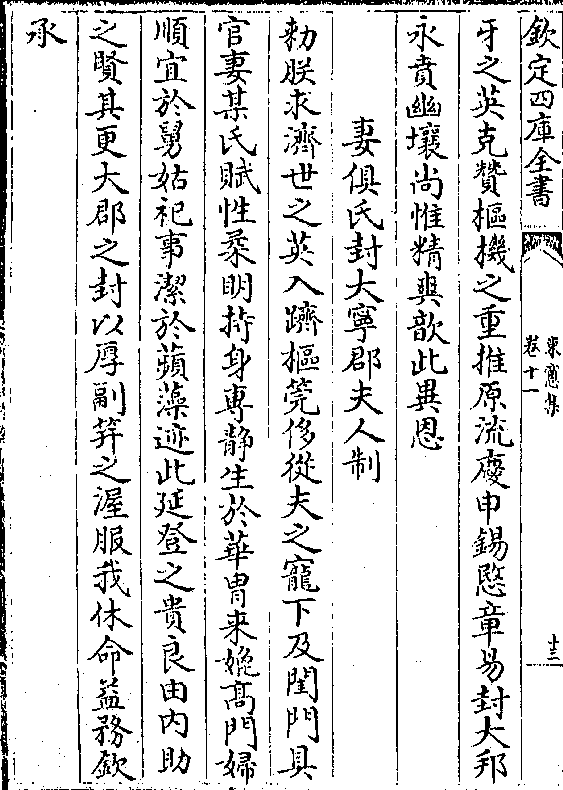 欽定四庫全書
東窻集
卷十一
十三
牙之英克贊樞機之重推原流慶申錫愍章易封大邦
永賁幽壤尚惟精爽歆此異恩
妻俱氏封大寧郡夫人制
勑朕求濟世之英入躋樞筦侈從夫之寵下及閨門具
官妻某氏賦性柔明持身專静生於華胄来媲髙門婦
順宜於舅姑祀事潔於蘋藻迹此延登之貴良由内助
之賢其更大郡之封以厚副笄之渥服我休命益務欽
承